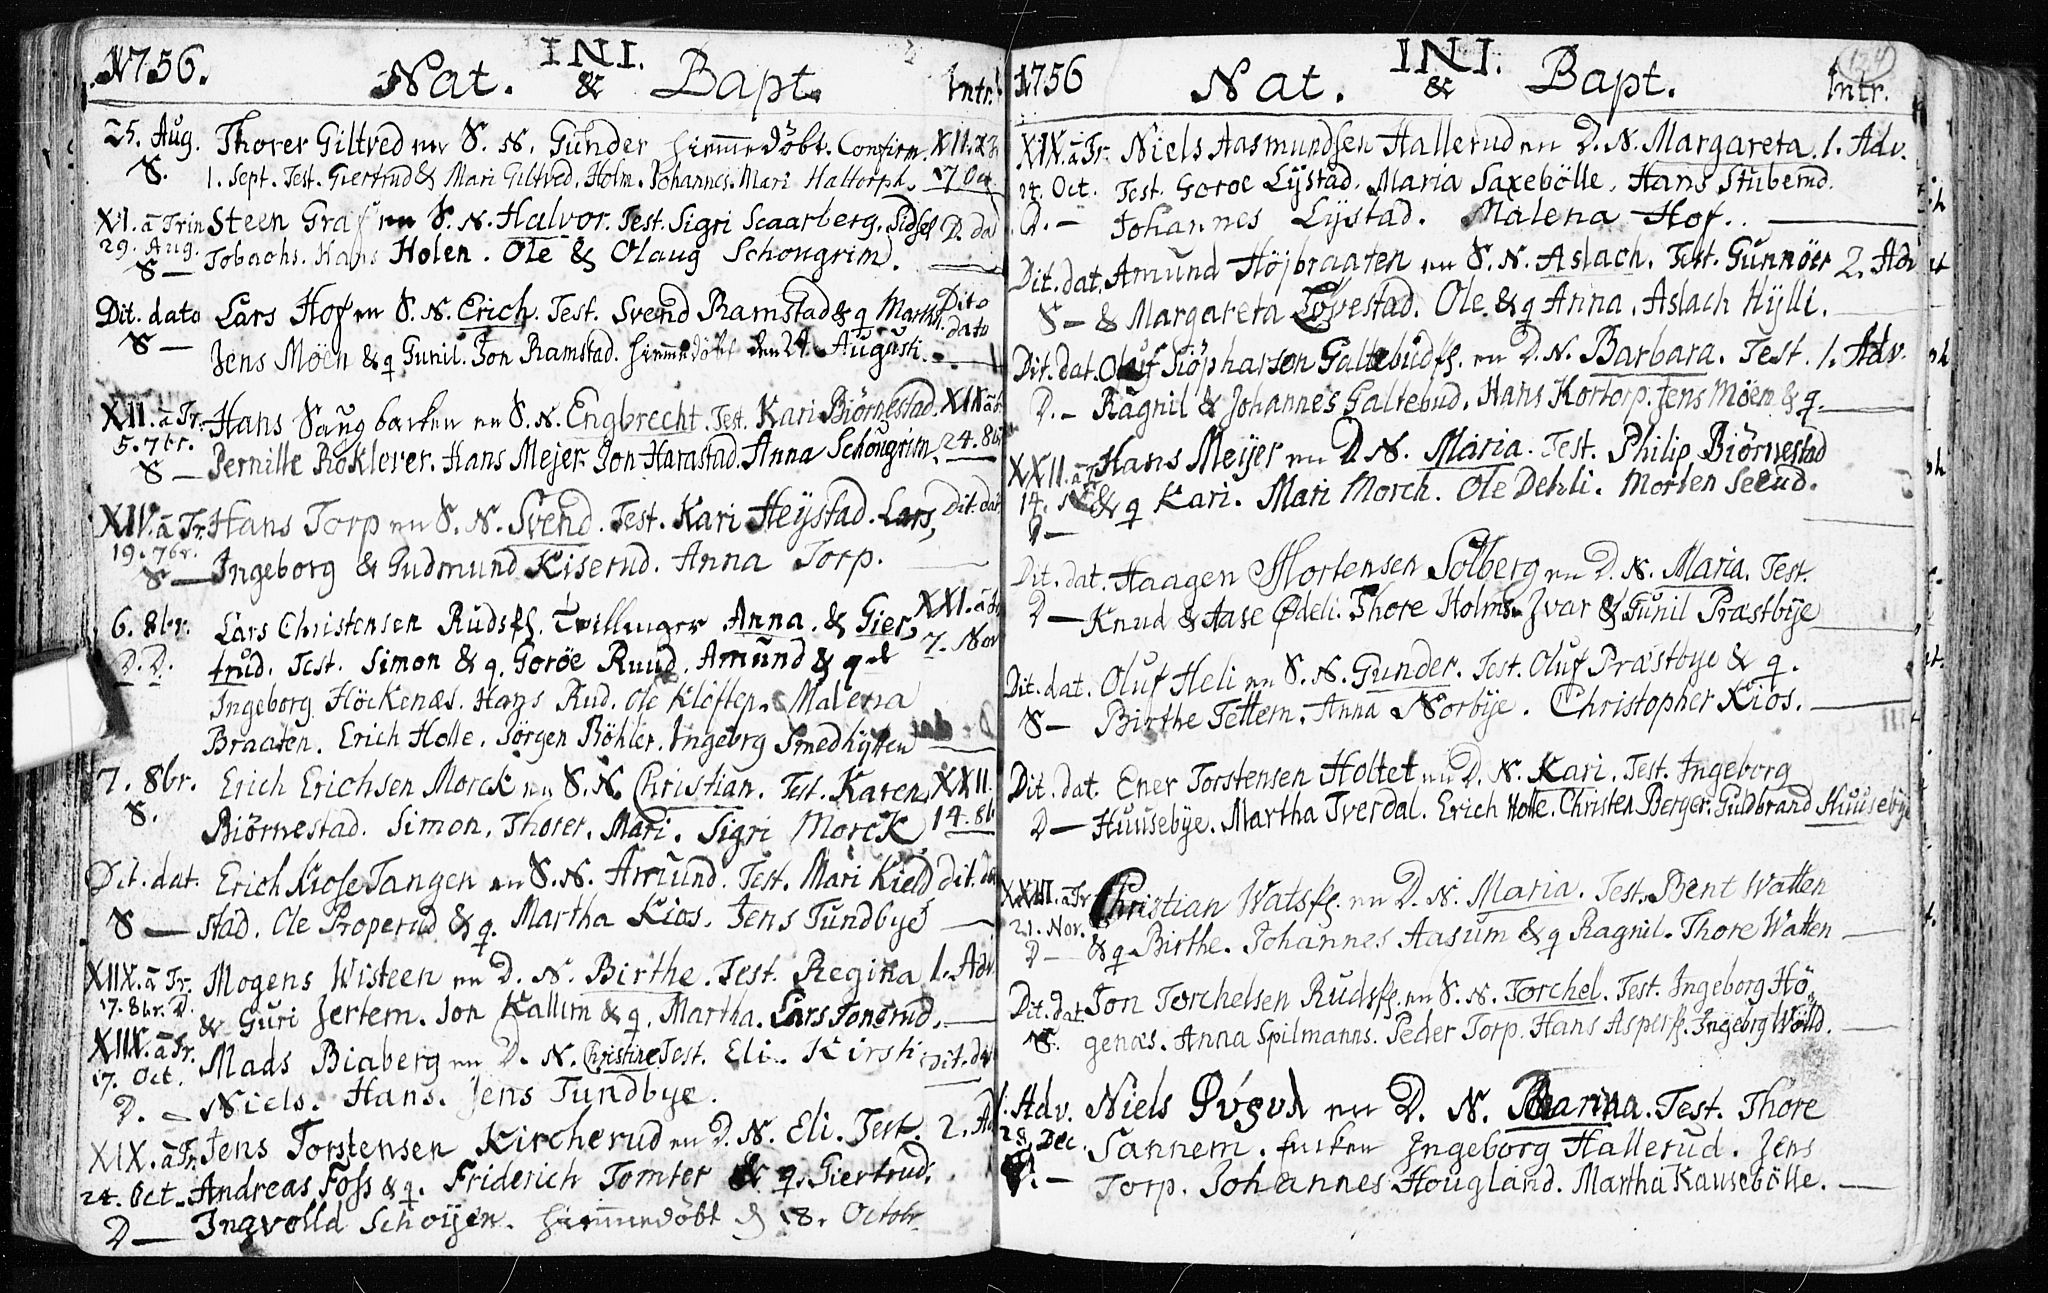 1756. INI.
Nat. & Bapt. Intr.
25. Aug. Thorer Giltved en S. N. Gunder hiemmedöbt. Confirm. XII. a Tr.
S. 1. Sept. Test. Giertrud & Mari Giltved. Holm. Johannes. Mari Haltorph. 17 Oct.
XI. a Trin Steen Graf en S. N. Halvor. Test. Sigri Scaarberg. Sidsel D. da
29. Aug. S — Tobachs. Hans Holen. Ole & Olaug Schongrim.
Dit. dato Lars Hof en S. N. Erich. Test. Svend Ramstad & q Marthe. Dito dato
S — Jens Möen & q Gunil. Jon Ramstad. hiemmedöbt den 24. Augusti.
XII. a Tr. Hans Saugbacken en S. N. Engbrecht. Test. Kari Biörnestad. XIX a Tr.
5. 7br. Pernille Röklever. Hans Mejer. Jon Harastad. Anna Schongrim. 24. 8b
S —
XIV. a Tr. Hans Torp en S. N. Svend. Test. Kari Heystad. Lars, Dit. dat.
19. 7br. S — Ingeborg & Gudmund Kiserud. Anna Torp.
6. 8br. Lars Christensen Rudsf. Tvillinger Anna. & Gier, XXI. a Tr
D. D. trud. Test. Simon & q. Goröe Ruud. Amund & q 7. Nov
Ingeborg Höckenæs. Hans Rud. Ole Kloften. Malena
Braaten. Erich Holle. Jörgen Böhler. Ingeborg Smedhytten
7. 8br. Erich Erichsen Morck en S. N. Christian. Test. Karen XXII.
S. Biörnestad. Simon. Thorer. Mari. Sigri Morck 14. 8b
Dit. dat. Erich Kiose Tangen en S. N. Amund. Test. Mari Kield Dit. dat
S — stad. Ole Properud & q. Martha Kios. Jens Tundbye
XIIX. a Tr. Mogens Wisteen en D. N. Birthe. Test. Regina 1. Adv
17. 8br. D. & Guri Jertem. Jon Kallim & q. Martha. Lars Tonerud.
XIIX. a Tr. Mads Biaberg en D. N. Christine Test. Eli. Kirsti Dit. dat
17. Oct.
D. — Niels. Hans. Jens Tundbye.
XIX. a Tr. Jens Torstensen Kircherud en D. N. Eli. Test. 2. Ad
24. Oct. Andreas Foss & q. Friderich Tomter & q. Giertrud.
D — Ingvolld Schoijen. hiemmedöbt d 18. Octobr
1756 INI.
Nat. & Bapt. Intr.
XIX. a Tr. Niels Aasmundsen Hallerud en D. N. Margareta. 1. Adv.
24. Oct. Test. Goroe Lystad. Maria Saxebölle. Hans Stuberud.
D. — Johannes Lystad. Malena Hof.
Dit. dat. Amund Höjbraaten en S. N. Aslach. Test. Gunnöer 2. Adv
S — & Margareta Tovestad. Ole & q Anna. Aslach Hylli.
Dit. dat. Oluf Siöpharson Galtebudsf. en D. N. Barbara. Test. 1. Adv.
D. — Ragnil & Johannes Galtebud. Hans Kortorp. Jens Möen & q.
XXII. a Tr Hans Meijer en D. N. Maria. Test. Philip Biörnestad
14. & q Kari. Mari Morch. Ole Dehli. Morten Seeud.
D —
Dit. dat. Haagen Mortensen Solberg en D. N. Maria. Test.
D — Knud & Aase Ødeli. Thore Holms. Ivar & Gunil Præstbye
Dit. dat. Oluf Heli en S. N. Gunder. Test. Oluf Præstbye & q.
S — Birthe Tettem. Anna Norbye. Christopher Kios.
Dit. dat. Ener Torstensen Holtet en D. N. Kari. Test. Ingeborg
D — Huusebye. Martha Tverdal. Erich Holle. Christen Berger. Guldbrand Huusebye
XXIII. a Tr Christian Watsf. en D. N. Maria. Test. Bent Watten
21. Nov.
D — & q Birthe. Johannes Aasum & q Ragnil. Thore Watten
Dit. dat. Jon Torchelsen Rudsf. en S. N. Torchel. Test. Ingeborg Hö,
S. genæs. Anna Spilmanns. Peder Torp. Hans Aspersf. Ingeborg Wolld.
1. Adv. Niels en D. N. Marina. Test. Thore
28. Dec. Sannem. Ingeborg Hallerud. Jens
D. — Torp. Johannes Hougland. Martha Kausebölle.